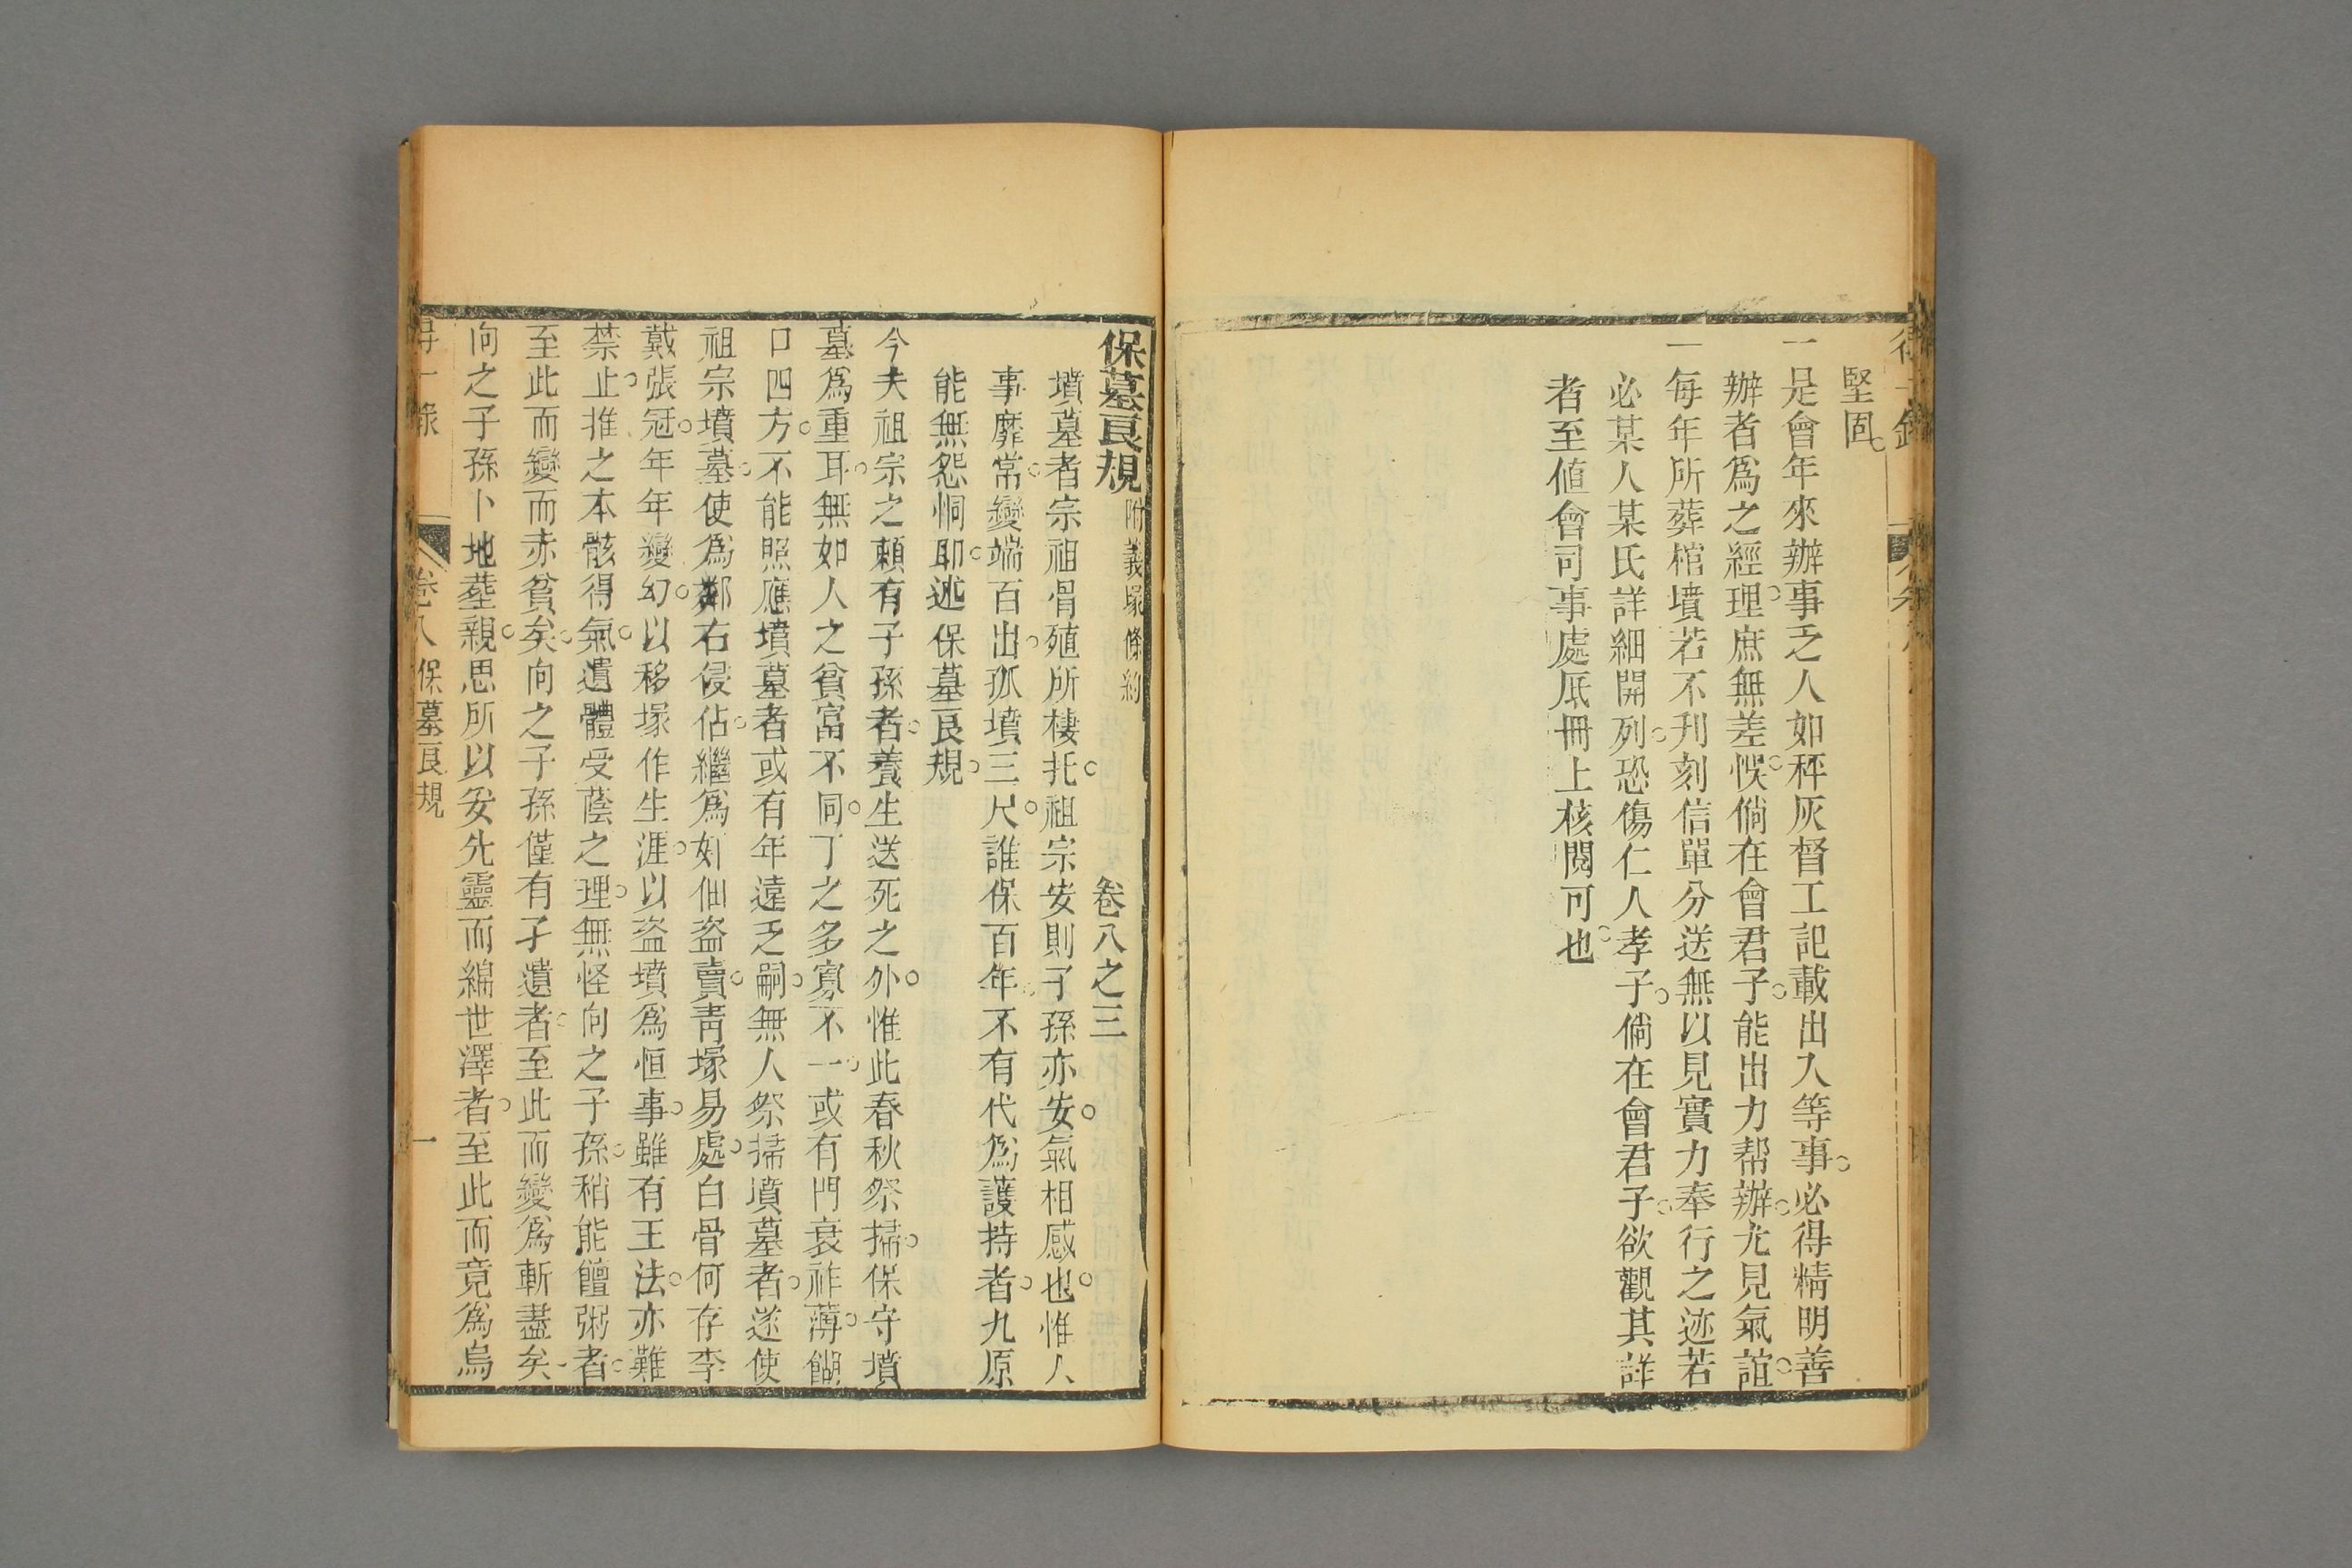 得一錄 卷八
堅固。
一是會年來辦事乏人如秤灰督工記載出入等事。必得精明善
辦者爲之經理。庶無差悞。倘在會君子。能出力帮辦。尤見氣誼。
一每年所葬棺墳若不刋刻信單分送無以見實力奉行之迹若
必某人某氏詳細開列。恐傷仁人孝子。倘在會君子。欲觀其詳
者至值會司事處底冊上核閱可也。
保墓良規附義塚條約 卷八之三
墳墓者宗祖骨殖所棲托。祖宗安則子孫亦安。氣相感也。惟人
事靡常。變端百出。孤墳三尺。誰保百年。不有代爲護持者。九原
能無怨恫耶。述保墓良規。
今夫祖宗之頼有子孫者。養生送死之外。惟此春秋祭掃。保守墳
墓爲重耳。無如人之貧富不同。丁之多寡不一。或有門衰祚薄。餬
口四方。不能照應墳墓者或有年遠乏嗣。無人祭掃墳墓者。遂使
祖宗墳墓。使爲鄰右侵佔。繼爲奸佃盜賣。靑塚易處。白骨何存李
戴張冠。年年變幻。以移塚作生涯。以盜墳爲恒事。雖有王法。亦難
禁止。推之本骸得氣。遺體受蔭之理。無怪向之子孫。稍能饘粥者。
至此而變而赤貧矣。向之子孫僅有孑遺者。至此而變爲斬盡矣。
向之子孫卜地塟親。思所以妥先靈而綿世澤者。至此而竟爲烏
得一錄 卷八 保墓良規 一